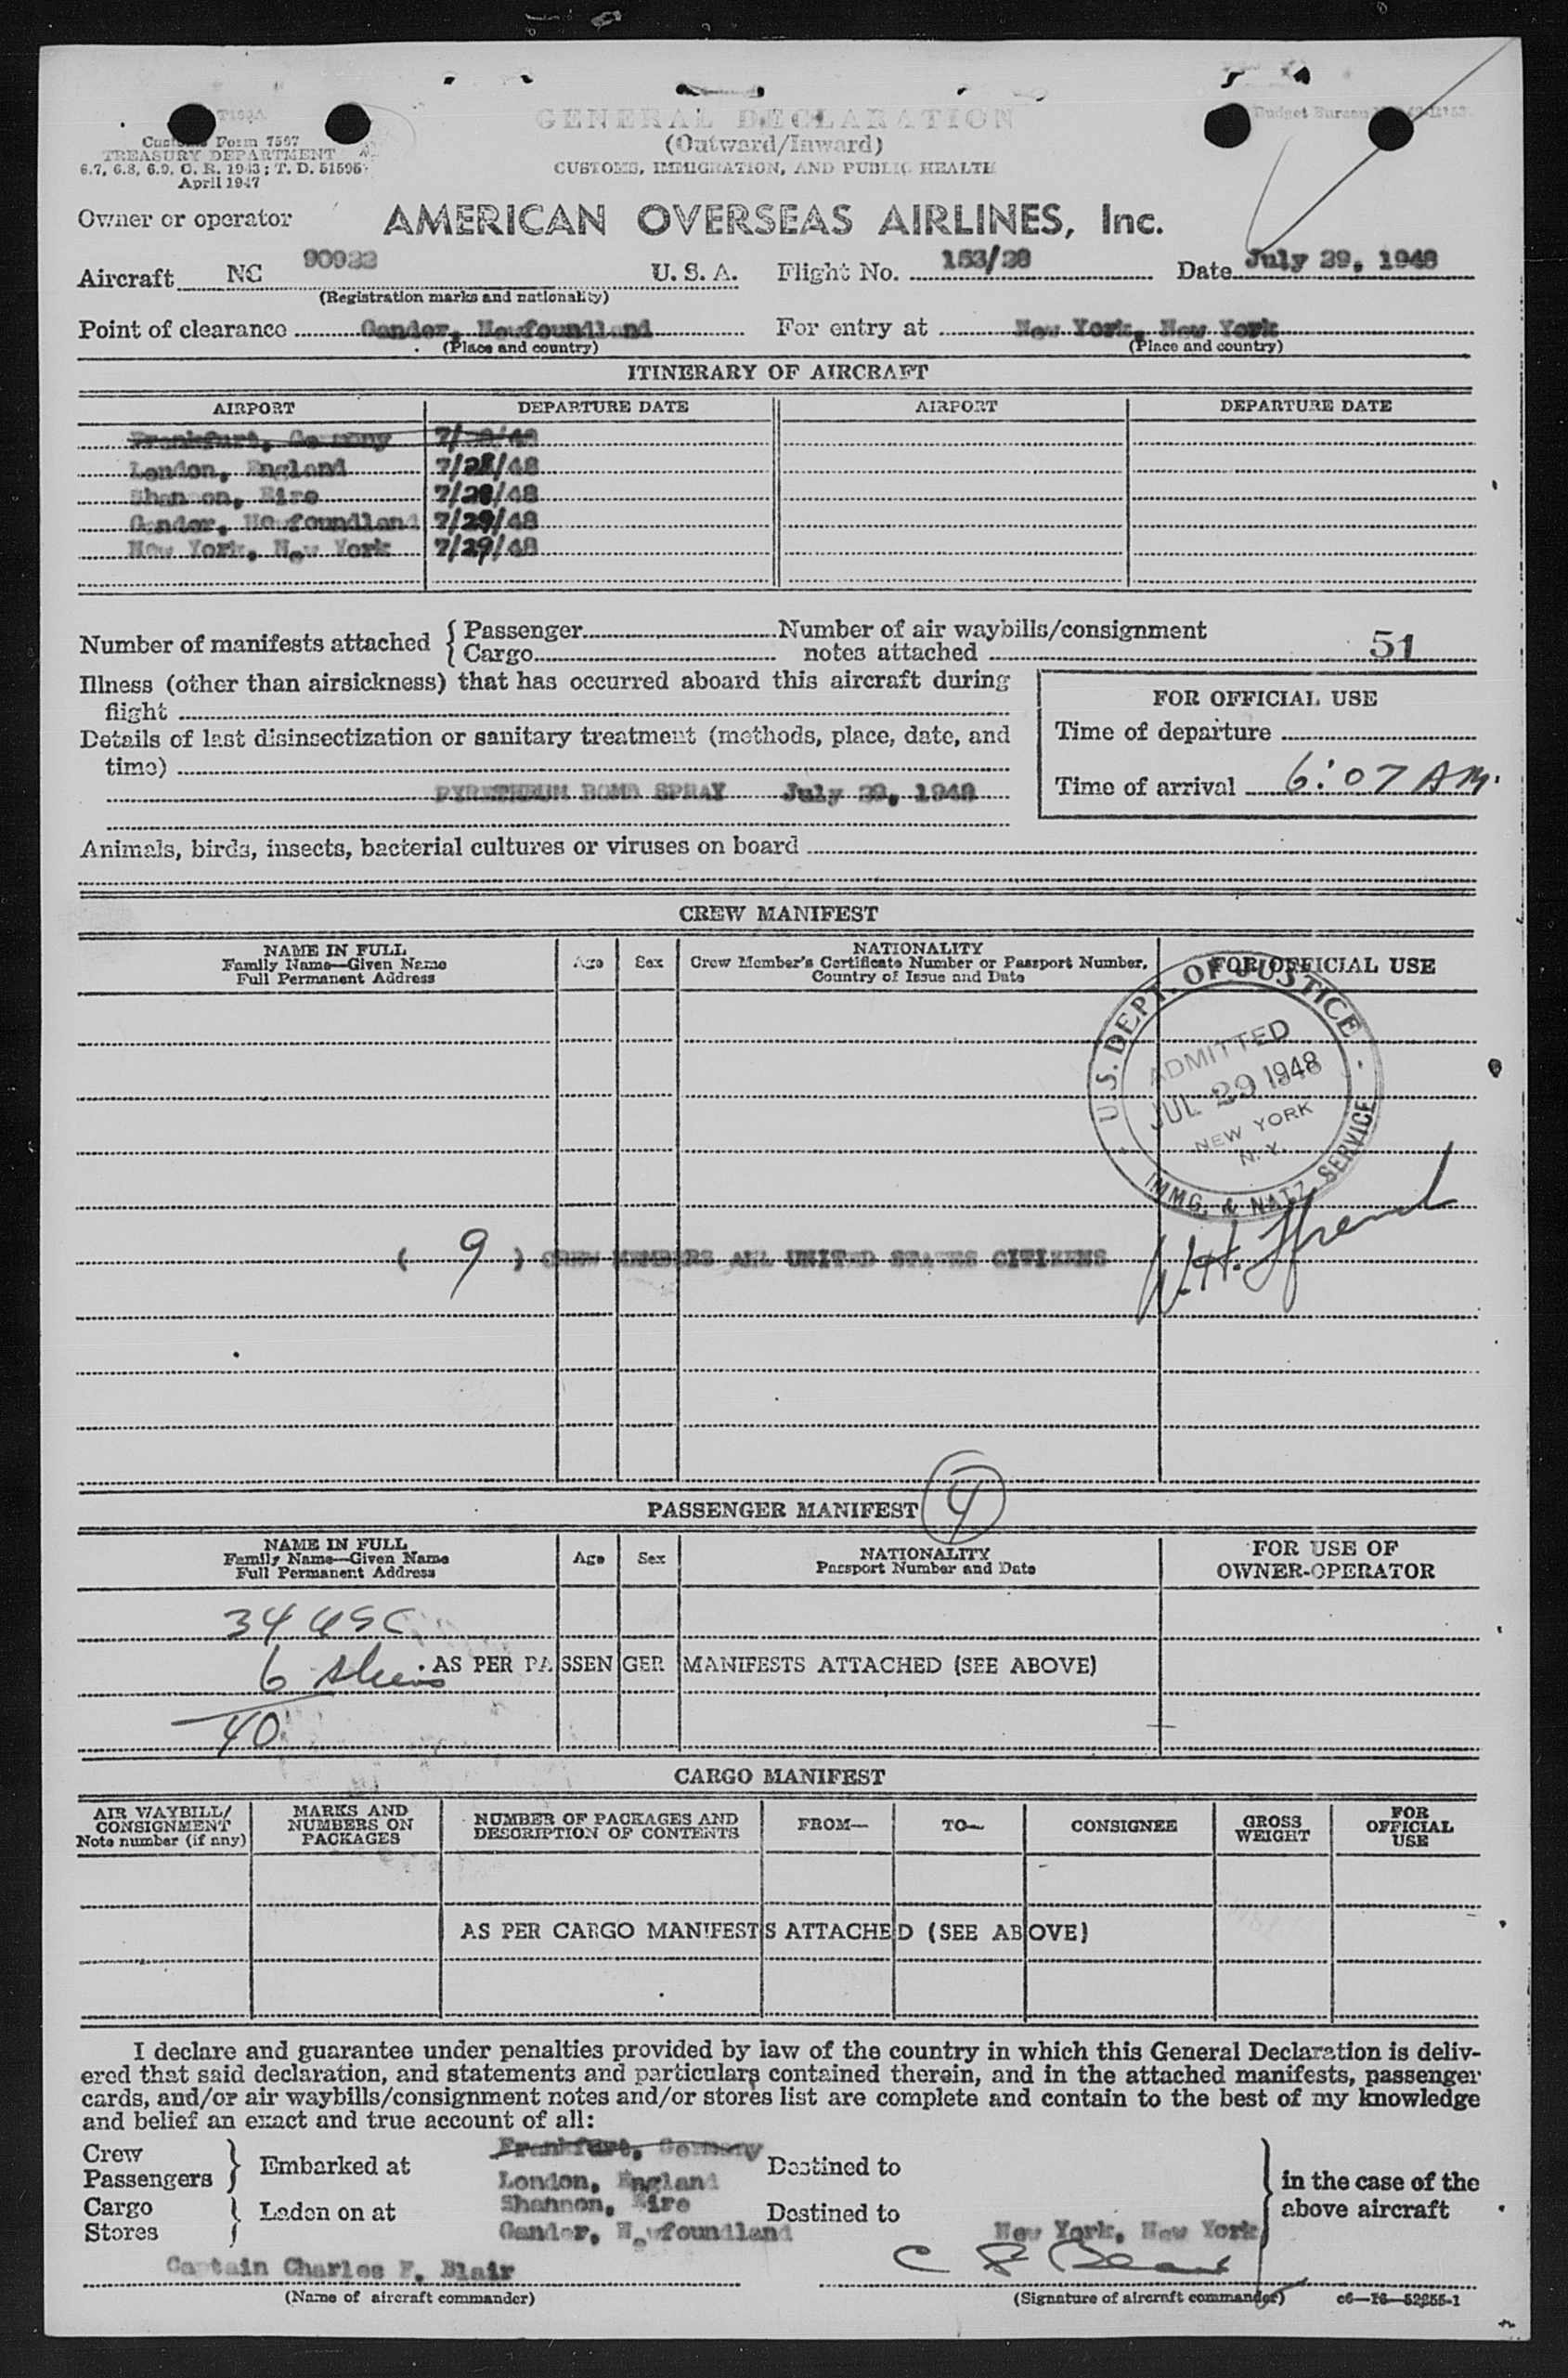 Customs Form 7507
TREASURY DEPARTMENT
6.7, 6.8, 6.9, C. R. 1943; T. D. 51595
April 1947
GENERAL DECLARATION
(Outward/Inward)
CUSTOMS, IMMIGRATION, AND PUBLIC HEALTH
Budget Bureau
Owner or operator AMERICAN OVERSEAS AIRLINES, Inc.
Aircraft NC 90922 U. S. A. Flight No. 153/28 Date July 29, 1948
(Registration marks and nationality)
Point of clearance Gander, Newfoundland For entry at New York, New York
(Place and country) (Place and country)
ITINERARY OF AIRCRAFT
AIRPORT DEPARTURE DATE AIRPORT DEPARTURE DATE
Frankfurt, Germany
London, England 7/28/48
Shannon, Eire 7/28/48
Gander, Newfoundland 7/29/48
New York, New York 7/29/48
Number of manifests attached { Passenger Number of air waybills/consignment
Cargo notes attached 51
Illness (other than airsickness) that has occurred aboard this aircraft during
flight
Details of last disinsectization or sanitary treatment (methods, place, date, and
time)
PYRETHRUM BOMB SPRAY July 29, 1948
FOR OFFICIAL USE
Time of departure
Time of arrival 6:07 AM.
Animals, birds, insects, bacterial cultures or viruses on board
CREW MANIFEST
NAME IN FULL
Family Name—Given Name
Full Permanent Address
Age
Sex
NATIONALITY
Crew Member's Certificate Number or Passport Number,
Country of Issue and Date
FOR OFFICIAL USE
U.S. DEPT. OF JUSTICE
ADMITTED
JUL 29 1948
NEW YORK
N. Y.
IMMG. & NATZ. SERVICE
( 9 ) CREW MEMBERS ALL UNITED STATES CITIZENS
PASSENGER MANIFEST
NAME IN FULL
Family Name—Given Name
Full Permanent Address
Age
Sex
NATIONALITY
Passport Number and Date
FOR USE OF
OWNER-OPERATOR
34 USC
6 Aliens AS PER PASSENGER MANIFESTS ATTACHED (SEE ABOVE)
40
CARGO MANIFEST
AIR WAYBILL/
CONSIGNMENT
Note number (if any)
MARKS AND
NUMBERS ON
PACKAGES
NUMBER OF PACKAGES AND
DESCRIPTION OF CONTENTS
FROM—
TO—
CONSIGNEE
GROSS
WEIGHT
FOR
OFFICIAL
USE
AS PER CARGO MANIFESTS ATTACHED (SEE ABOVE)
I declare and guarantee under penalties provided by law of the country in which this General Declaration is deliv-
ered that said declaration, and statements and particulars contained therein, and in the attached manifests, passenger
cards, and/or air waybills/consignment notes and/or stores list are complete and contain to the best of my knowledge
and belief an exact and true account of all:
Crew
Passengers } Embarked at
Cargo
Stores } Laden on at
Frankfurt, Germany
London, England
Shannon, Eire
Gander, Newfoundland
Destined to
Destined to
New York, New York
in the case of the
above aircraft
Captain Charles F. Blair
C F Blair
(Name of aircraft commander) (Signature of aircraft commander) c6—16—52255-1